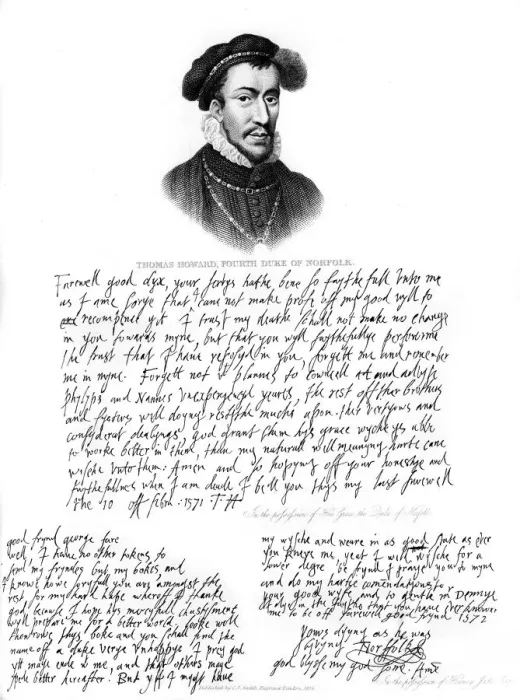 THOMAS HOWARD, FOURTH DUKE OF NORFOLK.
Farewell good dyx, your servys hathe bene so faythefull unto me
as I ame sorye that I cane not make profe off my good wyll to
recompence yt I trust my deathe schall not make no change
in you towards myne, but that you wyll faythefullye performe
the trust that I have reposyd in you forgett me and remember
me in myne. Forgett not
phylyps and Nannes unexperyencyd yeares, the rest off ther brothers
and systers well doyng resteth muche upon ther vertyous and
consyderat dealyngs, god grant them hys grace wyche ys able
to worke better in them, than my naturall well meanyng harte cane
wysche unto them: Amen and so hopyng off your honestye and
faythefullnes when I am deade I bell you thys my last farewell
the 10 off febru: 1571 T H
In the possession of His Grace the Duke of Norfolk
good frynd george
well, I have no other tokens to
send my fryndes but my bokes, and
I knowe howe you are amongst the
rest for my hape wheroff I thanke
god, because I hope hys mercyfull chastysment
wyll prepare me for a better world, looke well
thorowe thys boke and you schall fynd the
name off a duke verye unhappye I pray god
yt maye ende w me, and that others maye
hereafter. But yff I myght have
my wysche and weare in as good state as ever
you knewe me, yeat I wyll wysche for a
lower degre be frynd I praye you to myne
and do my hartie comendations to
your good wyfe, and to gentle
I dye in the faythe that you have ever knowne
me to be off farewell good frynd 1572
Yours dyyng as he was
lyvyng Norfolk
god blysse my god Amen
In the possession of
Published by C. J. Smith,